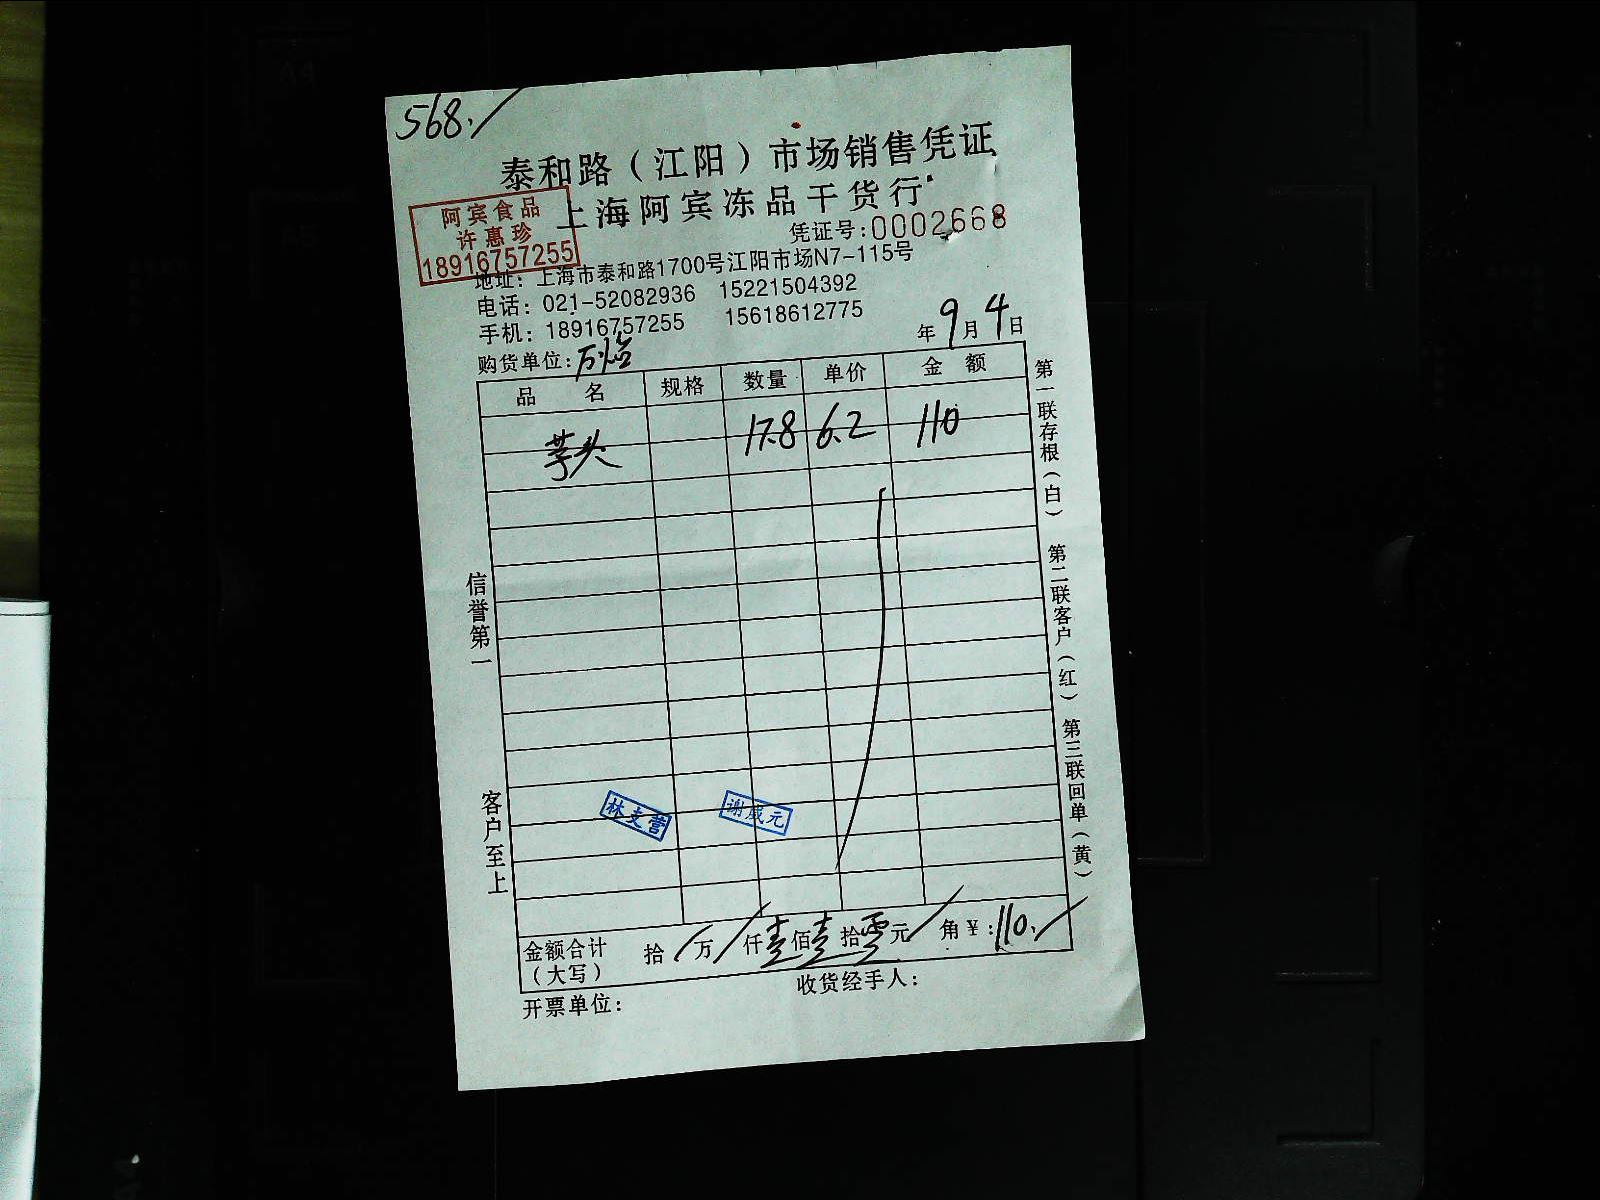 568./
泰和路（江阳）市场销售凭证
上海阿宾冻品干货行
阿宾食品
许惠珍
18916757255
凭证号:0002668
地址：上海市泰和路1700号江阳市场N7-115号
电话：021-52082936 15221504392
手机：18916757255 15618612775
年9月4日
购货单位:万
品 名 规格 数量 单价 金 额
芋头 17.8 6.2 110
信誉第一
客户至上
第一联存根（白） 第二联客户（红） 第三联回单（黄）
林支营
谢威元
金额合计（大写） 拾/万/仟壹佰壹拾零元/角¥:110./
开票单位： 收货经手人：